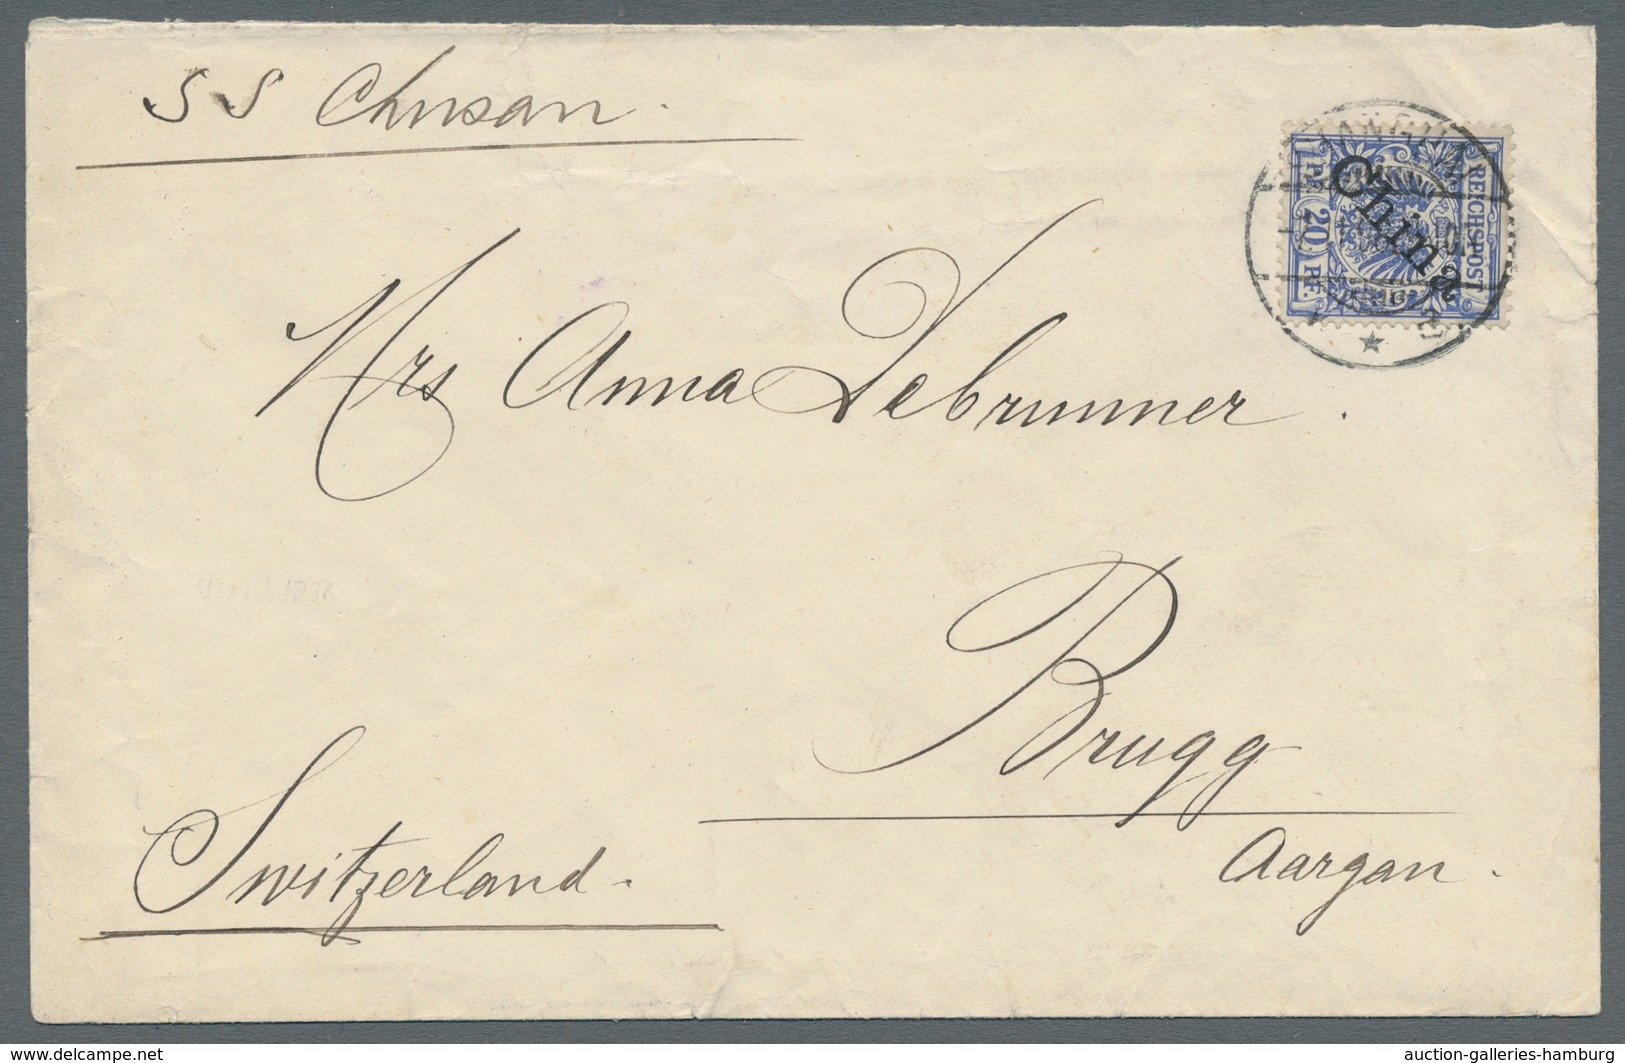 SS Chusan.
China
REICHSPOST
20
PF. 20 PF.
Mrs Anna Debrunner.
Brugg
Aargau.
Switzerland.
www.delcampe.net
auction-galleries-hamburg